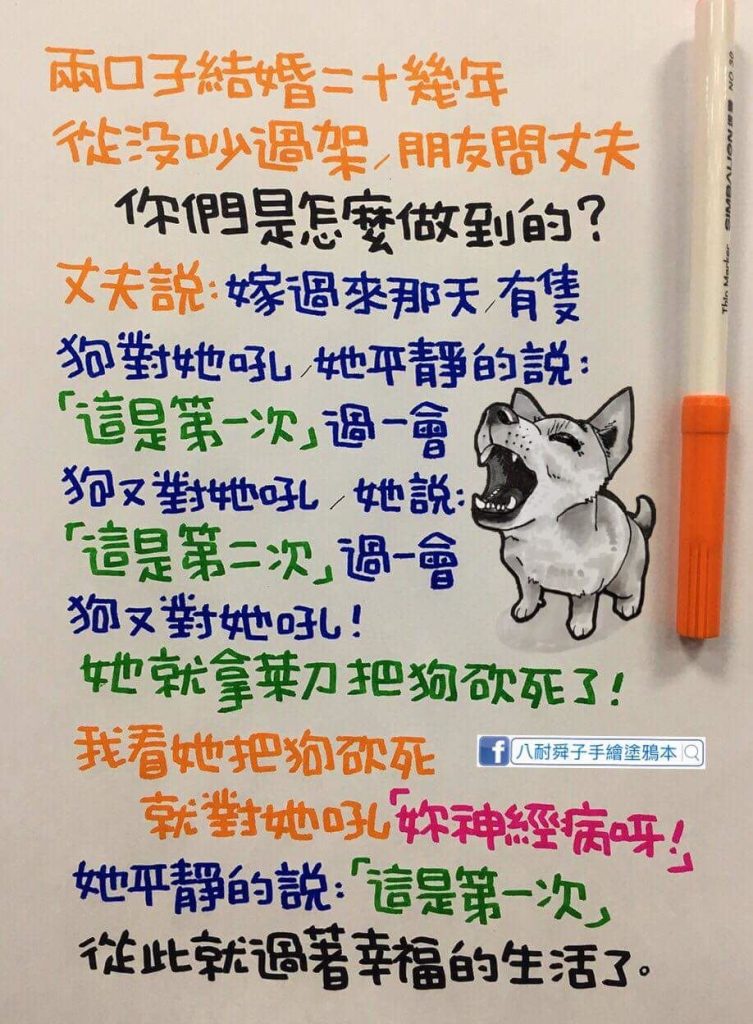 兩口子結婚二十幾年
從没吵過架/朋友問丈夫
你們是怎麼做到的?
丈夫說:嫁過來那天/有隻
狗對她吼/她平靜的說:
「這是第一次」過一會
狗又對她吼/她說:
「這是第二次」過一會
狗又對她吼!
她就拿菜刀把狗砍死了!
我看她把狗砍死
f 八耐舜子手繪塗鴉本
就對她吼「妳神經病呀!」
她平靜的說:「這是第一次」
從此就過著幸福的生活了。
Thin Marker SIMBALION 雄獅 NO.